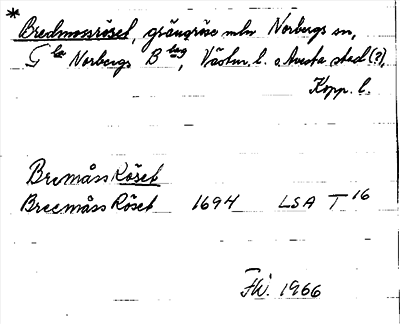 * Bredmossröset, gränsröse mln Norbergs sn,
Gla Norbergs Blag, Västm. l. o Avesta stad (?),
Kopp. l.
Bremåss Röset
Breemåss Röset 1694 LSA T 16
F.W. 1966